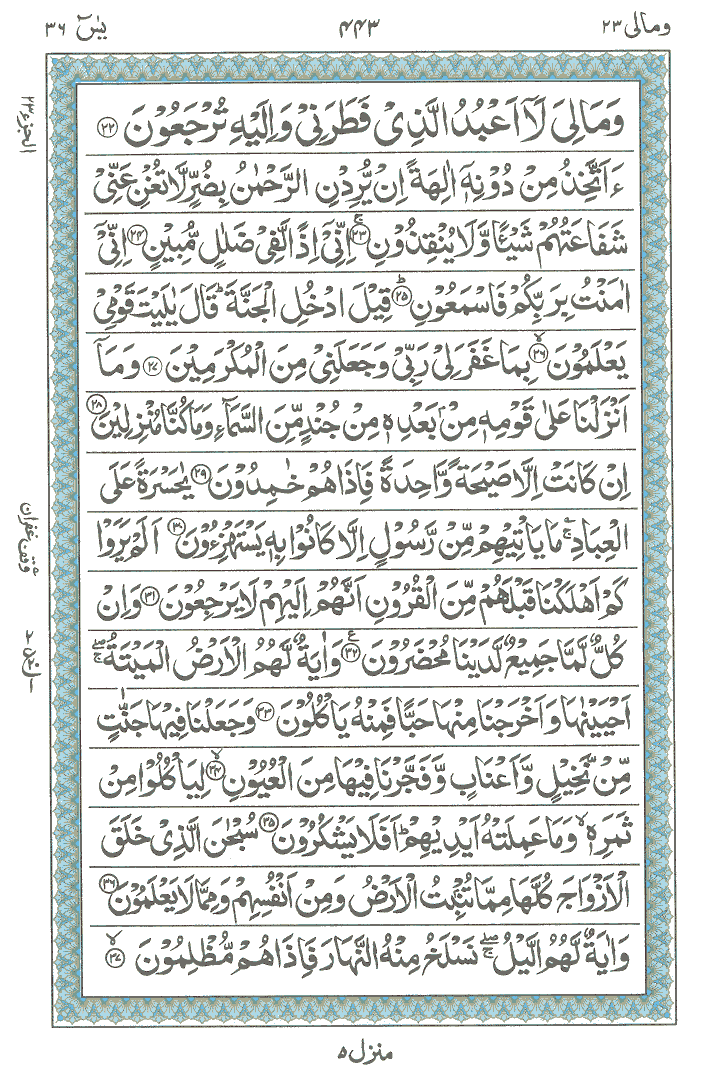 ومالی ۲۳
۴۴۳
یٰسٓ ۳۶
وَمَا لِیَ لَاۤ اَعْبُدُ الَّذِیْ فَطَرَنِیْ وَاِلَیْهِ تُرْجَعُوْنَ ﴿۲۲﴾
ءَاَتَّخِذُ مِنْ دُوْنِهٖۤ اٰلِهَةً اِنْ یُّرِدْنِ الرَّحْمٰنُ بِضُرٍّ لَّا تُغْنِ عَنِّیْ
شَفَاعَتُهُمْ شَیْـًٔا وَّلَا یُنْقِذُوْنِ ﴿۲۳﴾ۚ اِنِّیْۤ اِذًا لَّفِیْ ضَلٰلٍ مُّبِیْنٍ ﴿۲۴﴾ اِنِّیْۤ
اٰمَنْتُ بِرَبِّكُمْ فَاسْمَعُوْنِ ﴿۲۵﴾ؕ قِیْلَ ادْخُلِ الْجَنَّةَ ؕ قَالَ یٰلَیْتَ قَوْمِیْ
یَعْلَمُوْنَ ﴿۲۶﴾ۙ بِمَا غَفَرَ لِیْ رَبِّیْ وَجَعَلَنِیْ مِنَ الْمُكْرَمِیْنَ ﴿۲۷﴾ وَمَاۤ
اَنْزَلْنَا عَلٰی قَوْمِهٖ مِنْۢ بَعْدِهٖ مِنْ جُنْدٍ مِّنَ السَّمَآءِ وَمَا كُنَّا مُنْزِلِیْنَ ﴿۲۸﴾
اِنْ كَانَتْ اِلَّا صَیْحَةً وَّاحِدَةً فَاِذَا هُمْ خٰمِدُوْنَ ﴿۲۹﴾ یٰحَسْرَةً عَلَی
الْعِبَادِ ۚ مَا یَاْتِیْهِمْ مِّنْ رَّسُوْلٍ اِلَّا كَانُوْا بِهٖ یَسْتَهْزِءُوْنَ ﴿۳۰﴾ اَلَمْ یَرَوْا
كَمْ اَهْلَكْنَا قَبْلَهُمْ مِّنَ الْقُرُوْنِ اَنَّهُمْ اِلَیْهِمْ لَا یَرْجِعُوْنَ ﴿۳۱﴾ وَاِنْ
كُلٌّ لَّمَّا جَمِیْعٌ لَّدَیْنَا مُحْضَرُوْنَ ﴿۳۲﴾ ع وَاٰیَةٌ لَّهُمُ الْاَرْضُ الْمَیْتَةُ ۖۚ
اَحْیَیْنٰهَا وَاَخْرَجْنَا مِنْهَا حَبًّا فَمِنْهُ یَاْكُلُوْنَ ﴿۳۳﴾ وَجَعَلْنَا فِیْهَا جَنّٰتٍ
مِّنْ نَّخِیْلٍ وَّاَعْنَابٍ وَّفَجَّرْنَا فِیْهَا مِنَ الْعُیُوْنِ ﴿۳۴﴾ۙ لِیَاْكُلُوْا مِنْ
ثَمَرِهٖ ۙ وَمَا عَمِلَتْهُ اَیْدِیْهِمْ ؕ اَفَلَا یَشْكُرُوْنَ ﴿۳۵﴾ سُبْحٰنَ الَّذِیْ خَلَقَ
الْاَزْوَاجَ كُلَّهَا مِمَّا تُنْۢبِتُ الْاَرْضُ وَمِنْ اَنْفُسِهِمْ وَمِمَّا لَا یَعْلَمُوْنَ ﴿۳۶﴾
وَاٰیَةٌ لَّهُمُ الَّیْلُ ۖۚ نَسْلَخُ مِنْهُ النَّهَارَ فَاِذَا هُمْ مُّظْلِمُوْنَ ﴿۳۷﴾ۙ
الجزء ۲۳
وقف غفران
منزل ۵